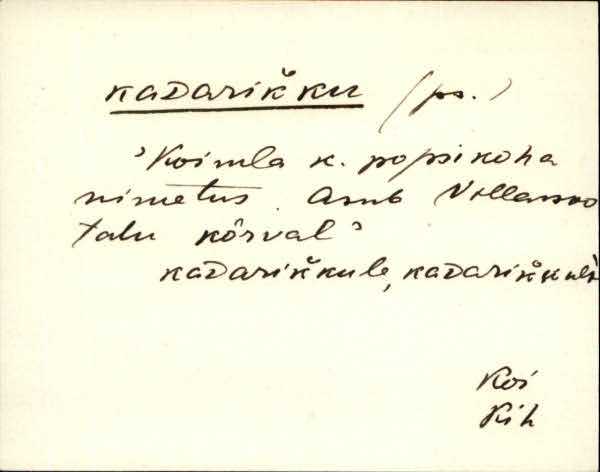 kaDariK̆ku (ps.)
'Koimla k. popsikoha
nimetus. Asub Vollamoo
talu kõrval'
kaDarik̆kule, kaDarik̆kulᴅ
Koi
Kih